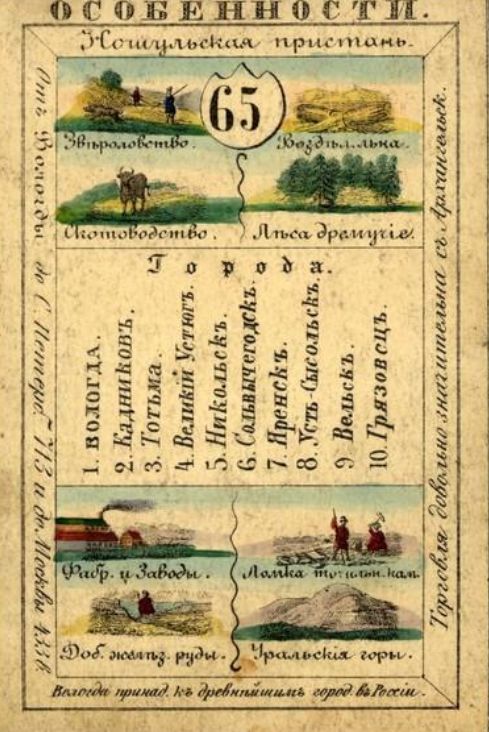 ОСОБЕННОСТИ.
Ношульская пристань.
65
Звѣроловство.
Воздѣл. льна.
Скотоводство.
Лѣса дремучіе.
Города.
1. ВОЛОГДА.
2. Кадниковъ.
3. Тотьма.
4. Великій Устюгъ.
5. Никольскъ.
6. Сольвычегодскъ.
7. Яренскъ.
8. Усть-Сысольскъ.
9 Вельскъ.
10. Грязовецъ.
Фабр. и Заводы.
Ломка точильн. кам.
Доб. желѣз. руды.
Уральскія горы.
Отъ Вологды до С. Петерб. 713 и до Москвы 433 в
Торговля довольно значительна съ Архангельск.
Вологда принад. къ древнѣйшимъ город. въ Россіи.